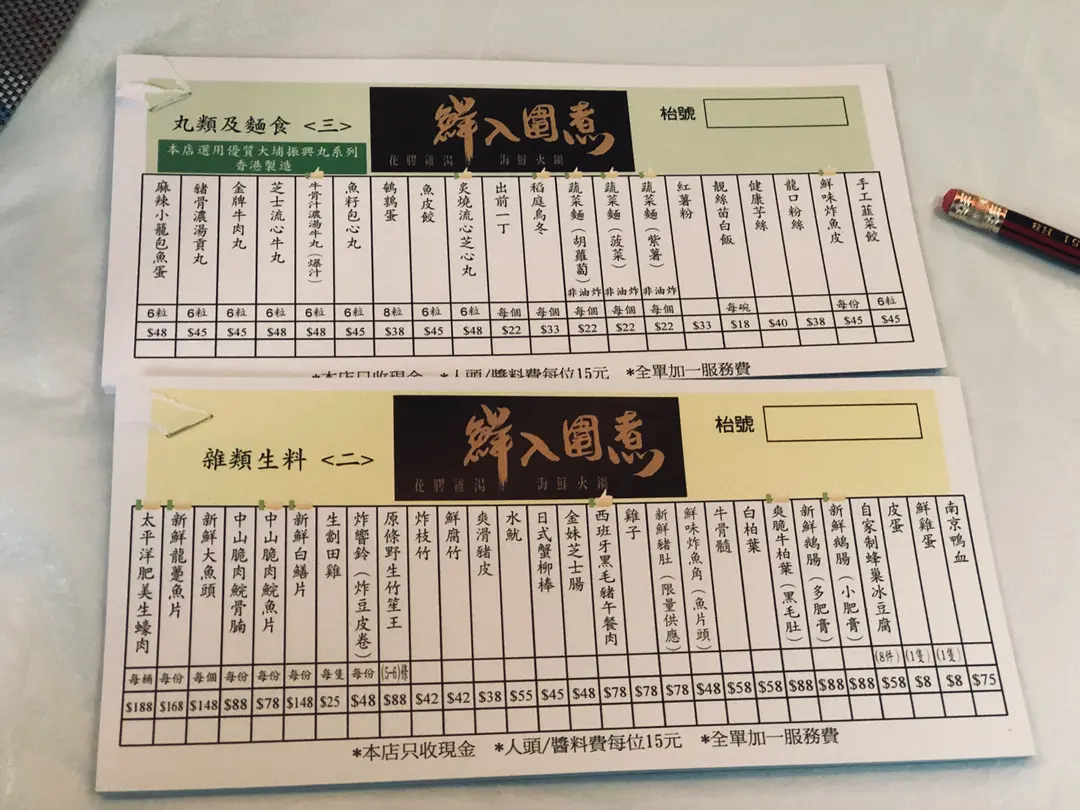 丸類及麵食 <三>
本店選用優質大埔振興丸系列
香港製造
鮮入圍煮
花膠雞湯 海鮮火鍋
枱號
麻辣小龍包魚蛋 6粒 $48
豬骨濃湯貢丸 6粒 $45
金牌牛肉丸 6粒 $45
芝士流心牛丸 6粒 $48
牛骨汁濃湯牛丸(爆汁) 6粒 $48
魚籽包心丸 6粒 $45
鵪鶉蛋 8粒 $38
魚皮餃 6粒 $45
炙燒流心芝心丸 6粒 $48
出前一丁 每個 $22
稻庭烏冬 每個 $33
蔬菜麵(胡蘿蔔) 非油炸 每個 $22
蔬菜麵(菠菜) 非油炸 每個 $22
蔬菜麵(紫薯) 非油炸 每個 $22
紅薯粉 $33
靚絲苗白飯 每碗 $18
健康芋絲 $40
龍口粉絲 $38
鮮味炸魚皮 每份 $45
手工韮菜餃 6粒 $45
*本店只收現金 *人頭/醬料費每位15元 *全單加一服務費
雜類生料 <二>
鮮入圍煮
花膠雞湯 海鮮火鍋
枱號
太平洋肥美生蠔肉 每桶 $188
新鮮龍躉魚片 每份 $168
新鮮大魚頭 每個 $148
中山脆肉鯇骨腩 每份 $88
中山脆肉鯇魚片 每份 $78
新鮮白鱔片 每份 $148
生劏田雞 每隻 $25
炸響鈴(炸豆皮卷) 每份 $48
原條野生竹笙王 (5-6)條 $88
炸枝竹 $42
鮮腐竹 $42
爽滑豬皮 $38
水魷 $55
日式蟹柳棒 $45
金妹芝士腸 $48
西班牙黑毛豬午餐肉 $78
雞子 $78
新鮮豬肚(限量供應) $78
鮮味炸魚角(魚片頭) $48
牛骨髓 $58
白柏葉 $58
爽脆牛柏葉(黑毛肚) $88
新鮮鵝腸(多肥膏) $88
新鮮鵝腸(小肥膏) $88
自家制蜂巢冰豆腐 (8件) $58
皮蛋 (1隻) $8
鮮雞蛋 (1隻) $8
南京鴨血 $75
*本店只收現金 *人頭/醬料費每位15元 *全單加一服務費
HB